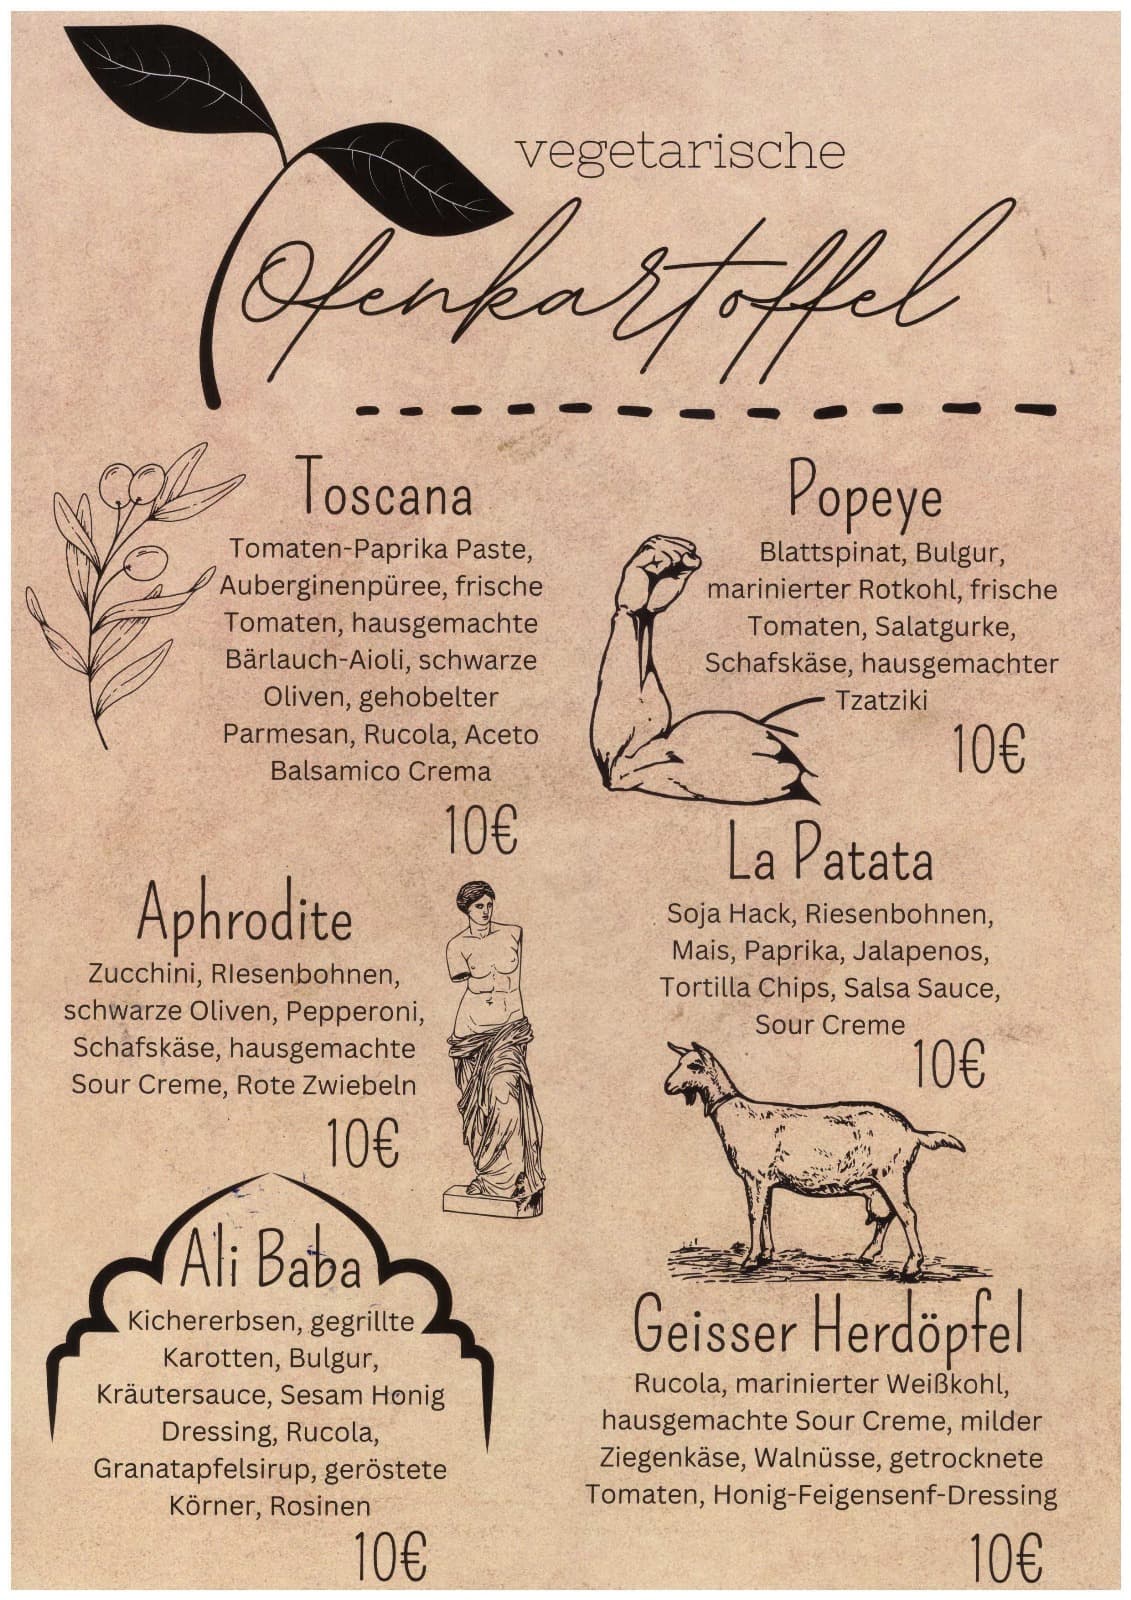 vegetarische
Ofenkartoffel
Toscana
Tomaten-Paprika Paste,
Auberginenpüree, frische
Tomaten, hausgemachte
Bärlauch-Aioli, schwarze
Oliven, gehobelter
Parmesan, Rucola, Aceto
Balsamico Crema
10€
Popeye
Blattspinat, Bulgur,
marinierter Rotkohl, frische
Tomaten, Salatgurke,
Schafskäse, hausgemachter
Tzatziki
10€
Aphrodite
Zucchini, RIesenbohnen,
schwarze Oliven, Pepperoni,
Schafskäse, hausgemachte
Sour Creme, Rote Zwiebeln
10€
La Patata
Soja Hack, Riesenbohnen,
Mais, Paprika, Jalapenos,
Tortilla Chips, Salsa Sauce,
Sour Creme
10€
Ali Baba
Kichererbsen, gegrillte
Karotten, Bulgur,
Kräutersauce, Sesam Honig
Dressing, Rucola,
Granatapfelsirup, geröstete
Körner, Rosinen
10€
Geisser Herdöpfel
Rucola, marinierter Weißkohl,
hausgemachte Sour Creme, milder
Ziegenkäse, Walnüsse, getrocknete
Tomaten, Honig-Feigensenf-Dressing
10€